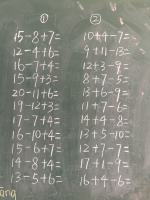 ① ②
15-8+7= 10+4-7=
12-4+6= 9+11-13=
16-7+4= 12+3-9=
15-9+3= 8+7-5=
20-11+6= 13+6-9=
19-12+3= 11+7-6=
17-7+4= 14+4-8=
16-10+4= 13+5-10=
15-6+7= 12+7-7=
14-8+4= 17+1-9=
13-5+6= 16+4-6=